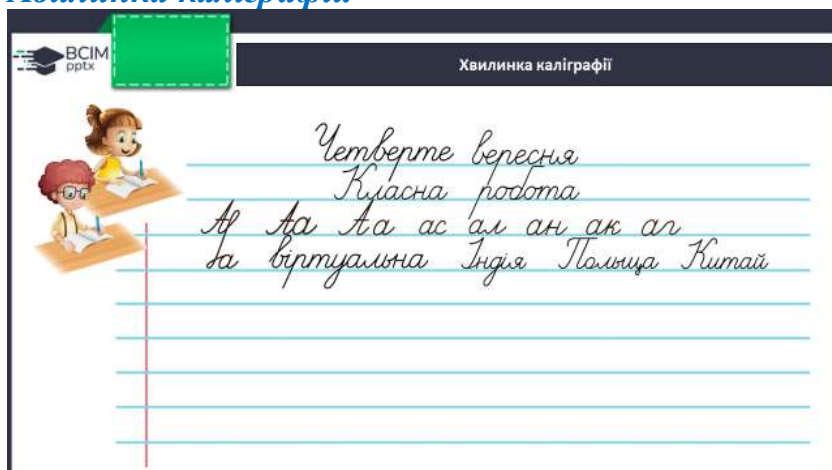 Хвилинка каліграфії.
ВСІМ
pptx
Хвилинка каліграфії
Четверте вересня
Класна робота
Аа Аа ас ал ан ак ап
віртуальна Індія Польща Китай